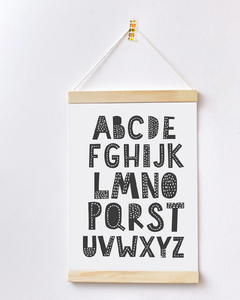 ABCDE
FGHIJK
LMNO
PQRST
UVWXYZ